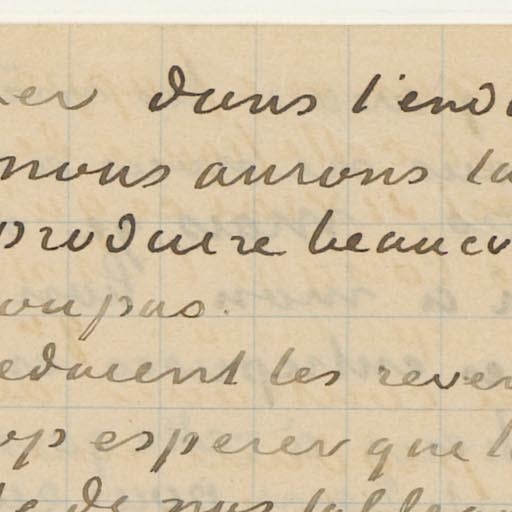 er dans l'end
nous aurons la
produire beaucou
ou pas.
eduient les reven
op esperer que l
de nos tableau